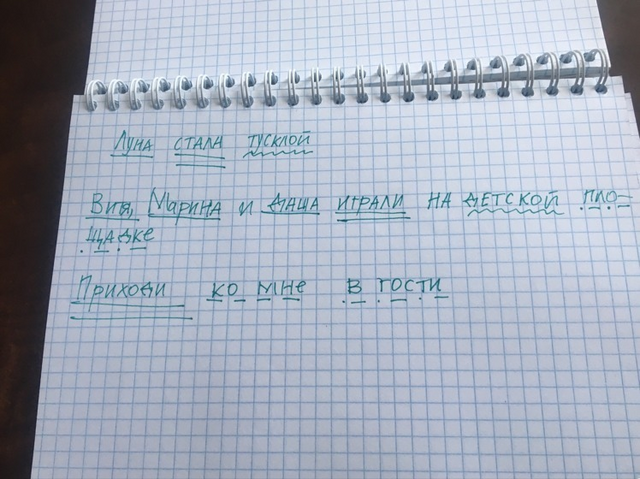 Луна стала тусклой
Витя, Марина и Даша играли на детской пло-
щадке
Приходи ко мне в гости